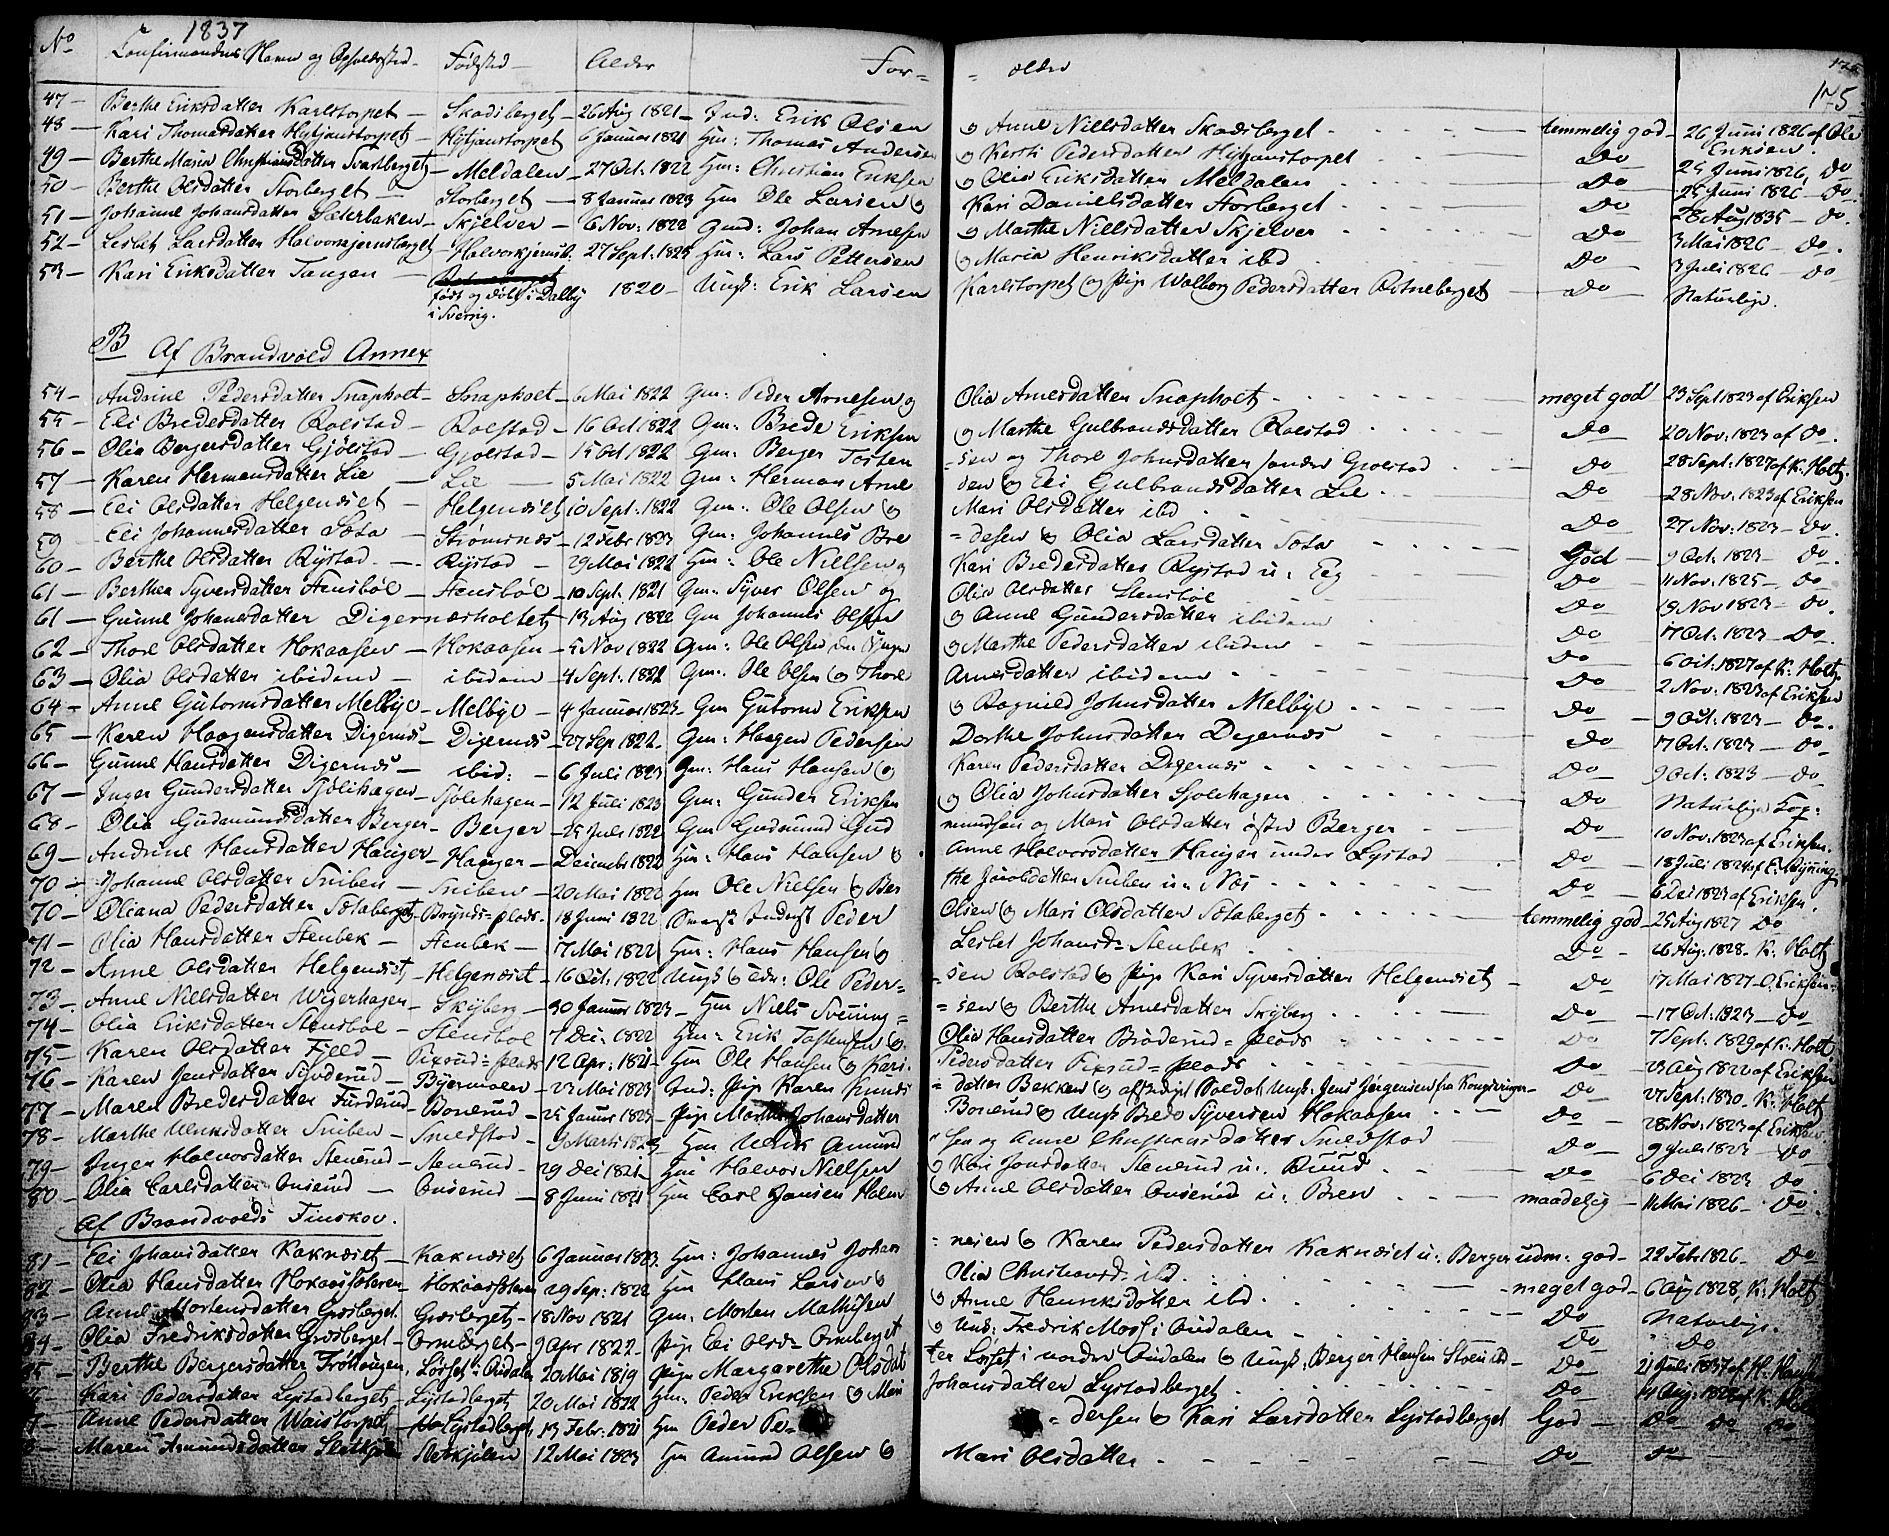 1837
No Confirmandens Navn og Opholdssted Fødested Alder For= =ældre 175
47 Berthe Eriksdatter Karlstorpet Skadsberget 26 Aug 1821 Ind: Erik Olsen og Anne Nielsdatter Skadsberget temmelig god 26 Juni 1826 af Ole Eriksen.
48 Kari Thomasdatter Hytjanstorpet Hytjanstorpet 6 Januar 1821 Hm: Thomas Andersen og Kersti Pedersdatter Hytjanstorpet Do 25 Juni 1826 Do
49 Berthe Maria Christiansdatter Svartberget Meldalen 27 Oct. 1822 Hm: Christian Eriksen og Olia Eriksdatter Meldalen Do 25 Juni 1826 Do
50 Berthe Olsdatter Storberget Storberget 8 Januar 1823 Hm Ole Larsen og Kari Danielsdatter Storberget Do 28 Aug 1835 Do.
51 Johanne Johansdatter Sæterbaken Skjelver 6 Nov: 1822 Gmd: Johan Arnesen og Marthe Nielsdatter Skjelver Do 3 Mai 1826 Do.
52 Lisbet Larsdatter Halvorskjernsberget Halvorskjernsb. 27 Sept. 1823 Hm: Lars Pettersen og Maria Henriksdatter ibd Do 3 Juli 1826 Do
53 Kari Eriksdatter Tangen født og døbt i Dalby i Sverrig. 1820 Ungk: Erik Larsen Karlstorpet og Pige Walborg Pedersdatter Rotneberget Do Naturlige.
B Af Brandvold Annex
54 Andrine Pedersdatter Snaphoet Snaphoet 6 Mai 1822 Gm: Peder Arnesen og Olia Arnesdatter Snaphoet meget god 23 Sept 1823 af Eriksen
55 Eli Bredesdatter Rolstad Rolstad 16 Oct 1822 Gm: Brede Eriksen og Marthe Gulbrandsdatter Rolstad Do 20 Nov: 1823 af Do.
56 Olia Bergersdatter Gjølstad Gjølstad 15 Oct 1822 Gm: Berger Tosten =sen og Thore Johnsdatter søndre Gjølstad Do 28 Sept: 1827 af K: Holt.
57 Karen Hermansdatter Lie Lie 5 Mai 1822 Gm: Herman Arne den og Eli Gulbrandsdatter Lie Do 28 Nov: 1823 af Eriksen
58 Eli Olsdatter Helgenæset Helgenæset 10 Sept: 1822 Gm: Ole Olsen og Mari Olsdatter ibd Do 27 Nov: 1823 Do.
59 Eli Johannesdatter Sota Strømsnes 12 Febr 1823 Gm: Johannes Bre =desen og Olia Larsdatter Sota God 9 Oct: 1823 Do
60 Berthe Olsdatter Rystad Rystad 29 Mai 1822 Hm: Ole Nielsen og Kari Bredesdatter Rystad u: Eeg Do 11 Nov: 1825 Do
61 Berthea Syversdatter Stensbøl Stensbøl 10 Sept. 1821 Gm: Syver Olsen og Olia Olsdatter Stensbøl Do 19 Nov 1823 Do.
61 Gunne Johanesdatter Digernæsholtet 13 Aug 1822 Gm Johannes Olsen og Anne Gundersdatter ibidem Do 17 Oct: 1823 Do.
62 Thore Olsdatter Hokaasen Hokaasen 5 Nov 1822 Gm: Ole Olsen den Yngre og Marthe Pedersdatter ibidem Do 6 Oct: 1827 af K: Holt.
63 Olia Olsdatter ibidem ibidem 4 Sept. 1822 Gm: Ole Olsen og Thore Arnesdatter ibidem Do 2 Nov: 1823 af Eriksen
64 Anne Gutormsdatter Melbye Melbye 4 Januar 1823 Gm Gutorm Eriksen og Ragnild Johnsdatter Melbye Do 9 Oct: 1823 Do.
65 Karen Haagensdatter Digernæs Digernæs 27 Sep 1822 Gm: Haagen Pedersen Dorthe Johnsdatter Digernæs Do 17 Oct: 1823 Do
66 Gunne Hansdatter Digernæs ibid: 6 Juli 1823 Gm: Hans Hansen og Karen Pedersdatter Digernæs Do 9 Oct: 1823 Do
67 Inger Gundersdatter Sjølihagen Sjølihagen 12 Juli 1823 Gm: Gunder Eriksen og Olia Johnsdatter Sjølihagen Do Naturlige Kop:
68 Olia Gudmundsdatter Berger Berger 25 Juli 1822 Gm Gudmund Gud mundsen og Mari Olsdatter østre Berger Do 10 Nov: 1823 af Eriksen.
69 Andrine Hansdatter Hauger Hauger December 1822 Hm: Hans Hansen og Anne Halvorsdatter Hauger under Lystad Do 18 Juli 1824
70 Johanne Olsdatter Sniben Sniben 20 Mai 1822 Hm Ole Nielsen og Ber the Jacobsdatter Sniben u: Næs Do 6 Dec 1823 af Eriksen.
70 Oliana Pedersdatter Sotaberget Brynds=plads 18 Juni 1822 Peder Olsen og Mari Olsdatter Sotaberget temmelig god 25 Aug 1827 Do
71 Olia Hansdatter Stenbek Stenbek 17 Mai 1822 Hm: Hans Hansen og Lisbet Johansd= Stenbek Do 26 Aug: 1828. K: Holt
72 Anne Olsdatter Helgenæset Helgenæset 16 Oct: 1822 Ungk og Edr: Ole Peder= =sen Rolstad og Pige Kari Syversdatter Helgenæset Do 17 Mai 1827 O. Eriksen
73 Anne Nielsdatter Ugerhagen Skyberg 30 Januar 1823 Hm Niels Svening= =sen og Berthe Arnesdatter Skyberg Do 17 Oct: 1823 Do
74 Olia Eriksdatter Stensbøl Stensbøl 7 Dec: 1822 Hm: Erik Tostensen og Olia Hansdatter Brøderud=plads Do 7 Sept: 1829 af K: Holt
75 Karen Olsdatter Fjeld Pixrud=plads 12 Apr: 1821 Hm Ole Hansen og Kari Pedersdatter Pixrud=plads Do 23 Aug 1822 af Eriksen
76 Karen Jensdatter Bÿermoen 23 Mai 1823 Ind: Pige Karen Knuds =datter Bekken og afskediget Soldat Ungk: Jens Jørgensen fra Kongsvinger Do 27 Sept: 1830 K: Holt
77 Maren Bredesdatter Furuderud Bonerud 25 Januar 1823 Pige Marthe Johansdatter Bonerud og Ungk Brede Syversen Hokaasen Do 28 Nov: 1823 af Eriksen
78 Marthe Ulriksdatter Sniben Smedstad 9 Marts 1823 Hm Ulrik Amund sen og Anne Christiansdatter Smedstad Do 9 Juli 1823 Do
79 Inger Halvorsdatter Stenerud Stenerud 29 Dec 1821 Hm Halvor Nielsen og Kari Jonsdatter Stenerud u: Ruud Do 6 Dec 1823 Do
80 Olia Carlsdatter Buserud Buserud 8 Juni 1821 Hm Carl Jansen Holm og Anne Olsdatter Buserud u: Bren maadelig 11 Mai 1826 Do
Af Brandvolds Finskov.
81 Eli Johansdatter Kaknæset Kaknæset 6 Januar 1823 Hm: Johannes Johan =nesen og Karen Pedersdatter Kaknæset u: Berger udm: god 22 Feb: 1826 Do
82 Olia Hansdatter Hokaassæteren Hokaassæteren 29 Sep: 1822 Hm Hans Larsen og Olia Christiansd= ibd. meget god 6 Aug 1828, K: Holt
83 Anne Mortensdatter Græsberget Græsberget 18 Nov 1821 Gm: Morten Mathisen og Anne Henriksdatter ibd. Do Naturlige.
84 Olia Fredriksdatter Græsberget Orneberget 9 Apr 1822 Pige Eli Olsd= Orneberget og Und: Fredrik Moss i Oudalen Do Do
85 Berthe Bergersdatter Løfset i Oudalen 20 Mai 1819 Pige Margarethe Olsdat ter Løfset i nordre Oudalen og Ungk: Berger Hansen Do 21 Juli 1837
86 Kari Pedersdatter Lystadberget Lystadberget 20 Mai 1822 Hm: Peder Eriksen og Mari Johansdatter Lystadberget Do 11 Aug: 1828 af K: Holt
Anne Pedersdatter Waistorpet Lystadberget 13 Febr: 1821 Hm Peder Pe= =dersen og Kari Larsdatter Lystadberget God Do Do Do
Maren Amundsdatter Sletkjølen Sletkjølen 12 Mai 1823 Hm Amund Olsen og Mari Olsdatter Do Do